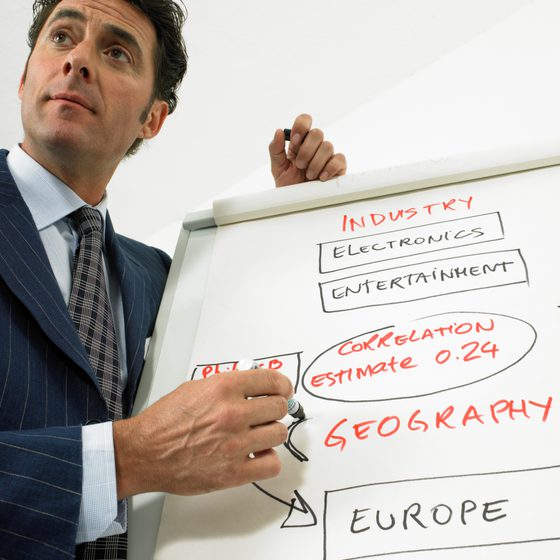 INDUSTRY
ELECTRONICS
ENTERTAINMENT
CORRELATION
ESTIMATE 0.24
GEOGRAPHY
EUROPE